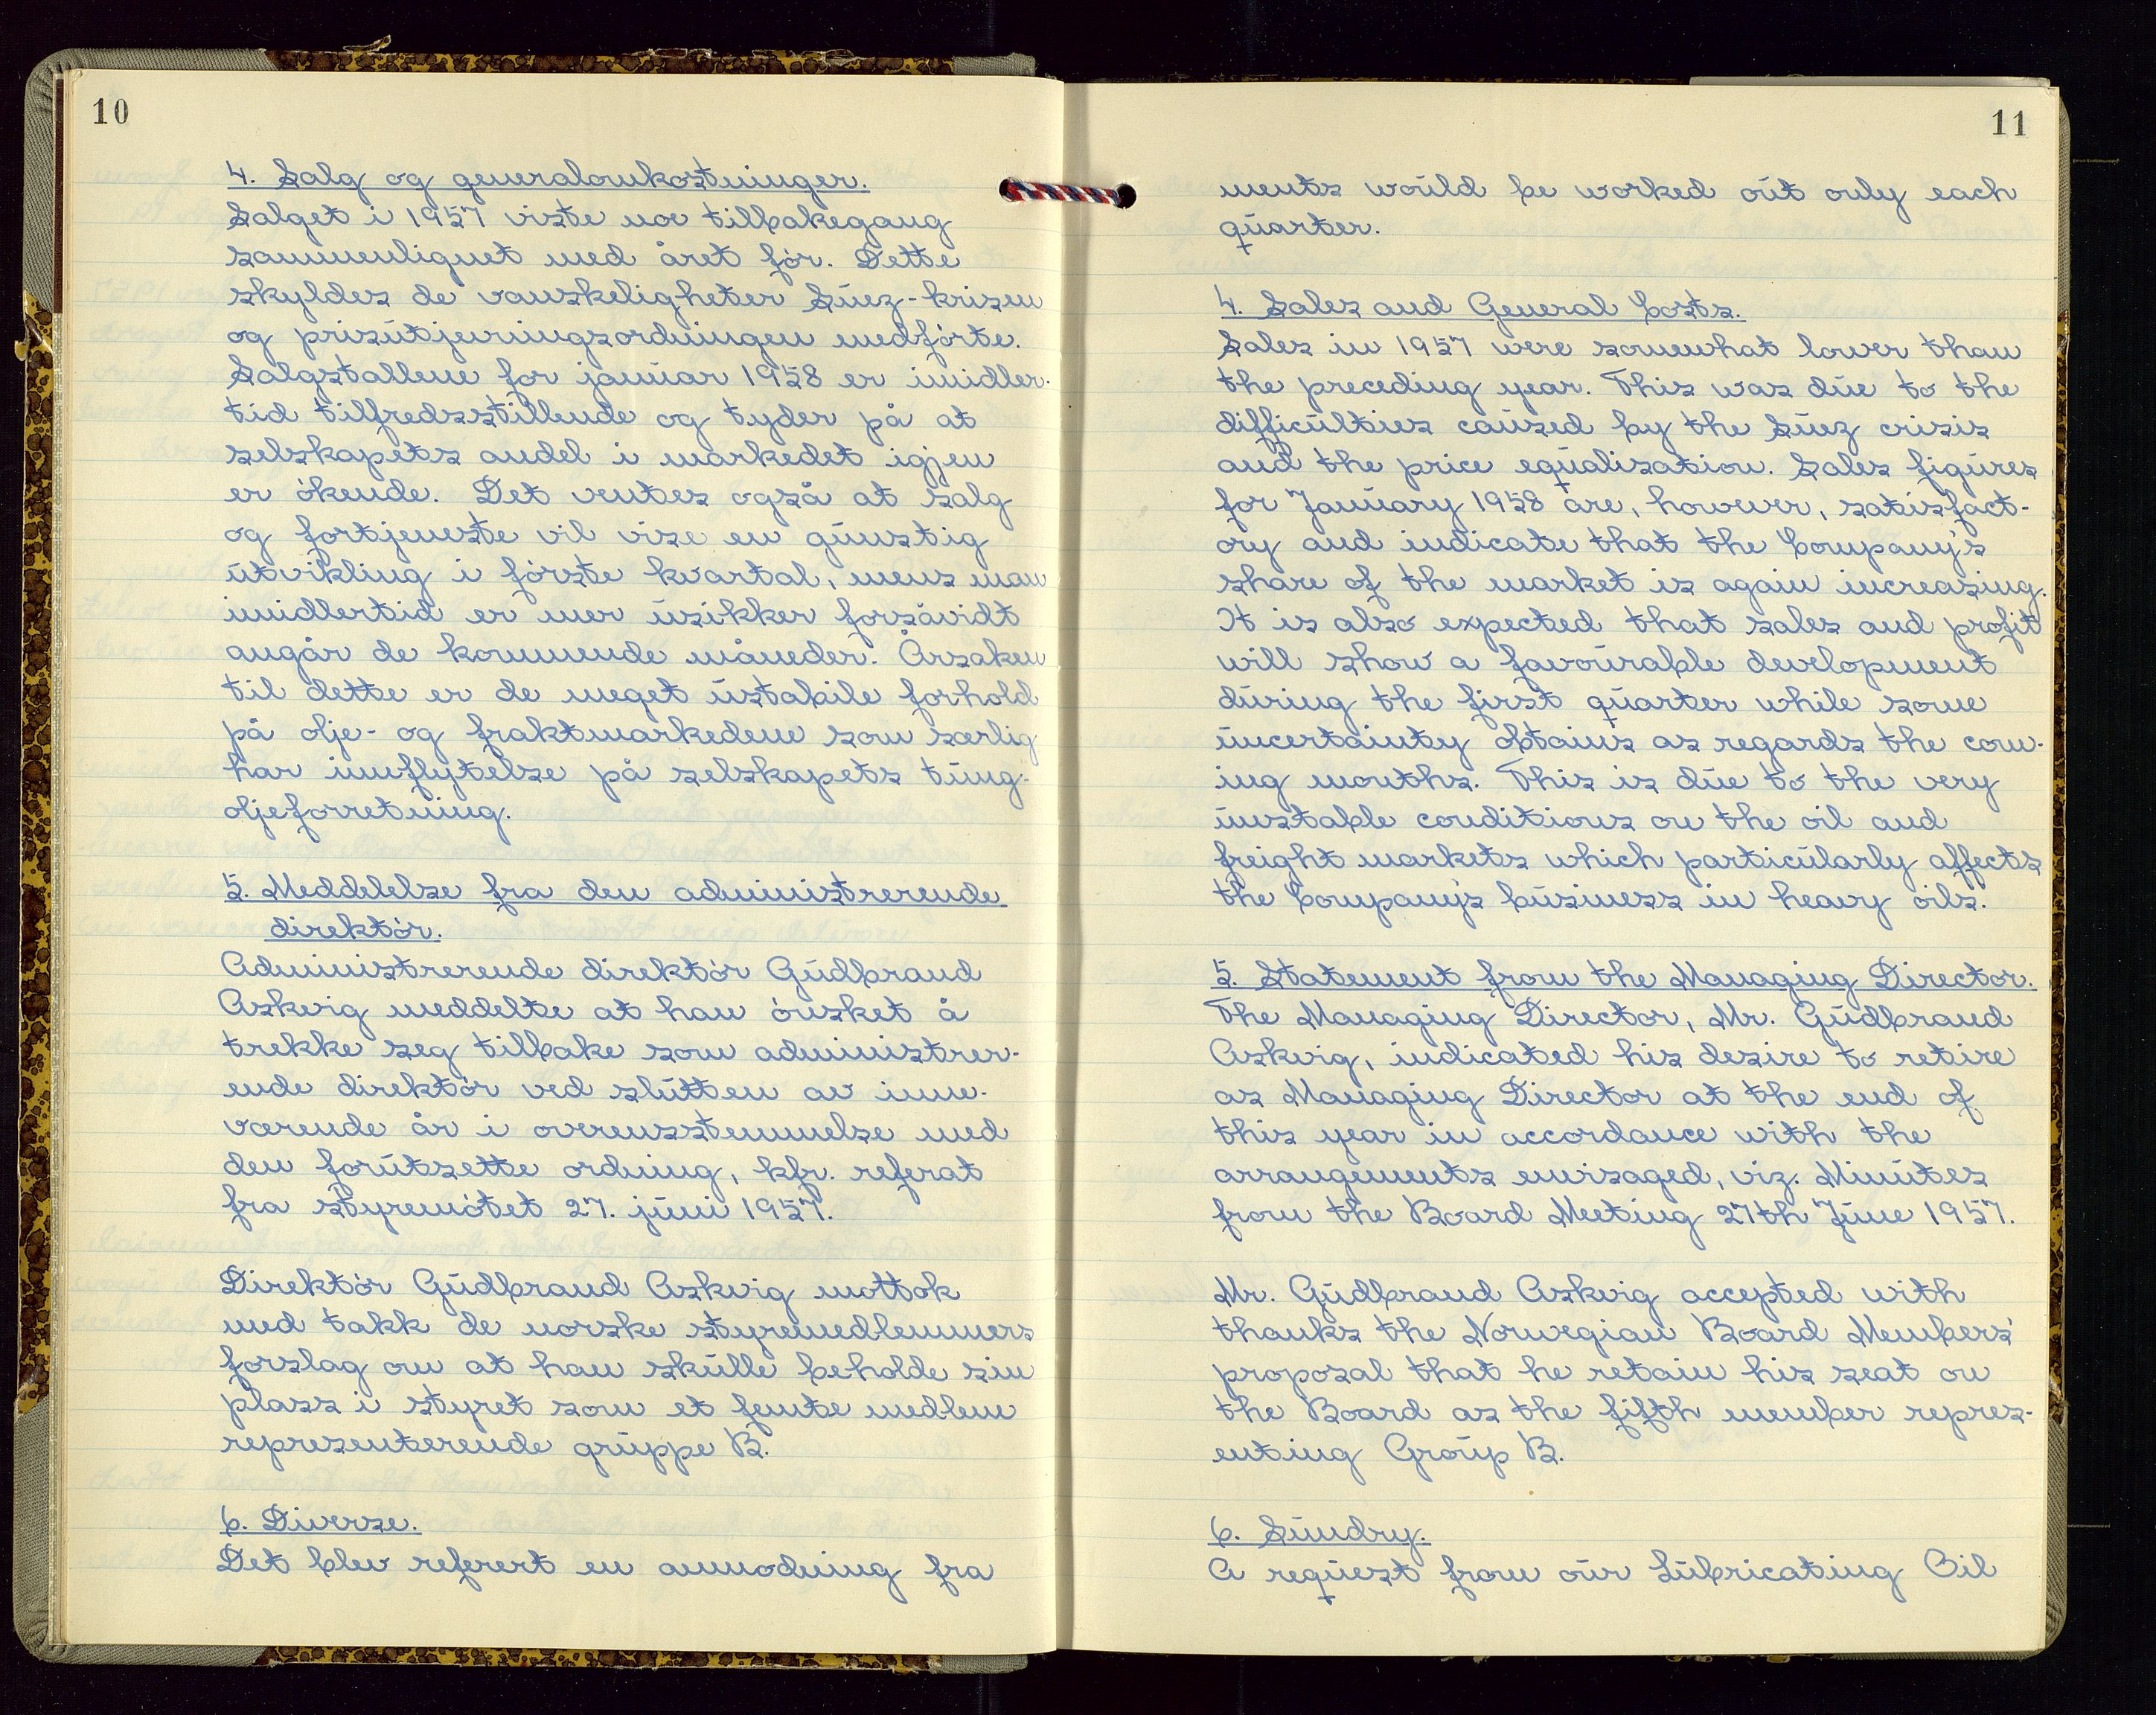 10
4. Salg og generalomkostninger.
Salget i 1957 viste noe tilbakegang
sammenlignet med året før. Dette
skyldes de vanskeligheter Suez-krisen
og prisutjevningsordningen medførte.
Salgstallene for januar 1958 er imidler-
tid tilfredsstillende og tyder på at
selskapets andel i markedet igjen
er økende. Det ventes også at salg
og fortjeneste vil vise en gunstig
utvikling i første kvartal, mens man
imidlertid er mer usikker forsåvidt
angår de kommende måneder. Årsaken
til dette er de meget ustabile forhold
på olje- og fraktmarkedene som særlig
har innflytelse på selskapets tung-
oljeforretning.
5. Meddelelse fra den administrerende
direktør.
Administrerende direktør Gudbrand
Askvig meddelte at han ønsket å
trekke seg tilbake som administrer-
ende direktør ved slutten av inne-
værende år i overensstemmelse med
den forutsette ordning, kfr. referat
fra styremøtet 27. juni 1957.
Direktør Gudbrand Askvig mottok
med takk de norske styremedlemmers
forslag om at han skulle beholde sin
plass i styret som et femte medlem
representerende gruppe B.
6. Diverse.
Det blev referert en anmodning fra
11
ments would be worked out only each
quarter.
4. Sales and General Costs.
Sales in 1957 were somewhat lower than
the preceding year. This was due to the
difficulties caused by the Suez crisis
and the price equalisation. Sales figures
for January 1958 are, however, satisfact-
ory and indicate that the Company's
share of the market is again increasing.
It is also expected that sales and profit
will show a favourable development
during the first quarter while some
uncertainty obtains as regards the com-
ing months. This is due to the very
unstable conditions on the oil and
freight markets which particularly affects
the Company's business in heavy oils.
5. Statement from the Managing Director.
The Managing Director, Mr. Gudbrand
Askvig, indicated his desire to retire
as Managing Director at the end of
this year in accordance with the
arrangements envisaged, viz. Minutes
from the Board Meeting 27th June 1957.
Mr. Gudbrand Askvig accepted with
thanks the Norwegian Board Members'
proposal that he retain his seat on
the Board as the fifth member repres-
enting Group B.
6. Sundry.
A request from our Lubricating Oil